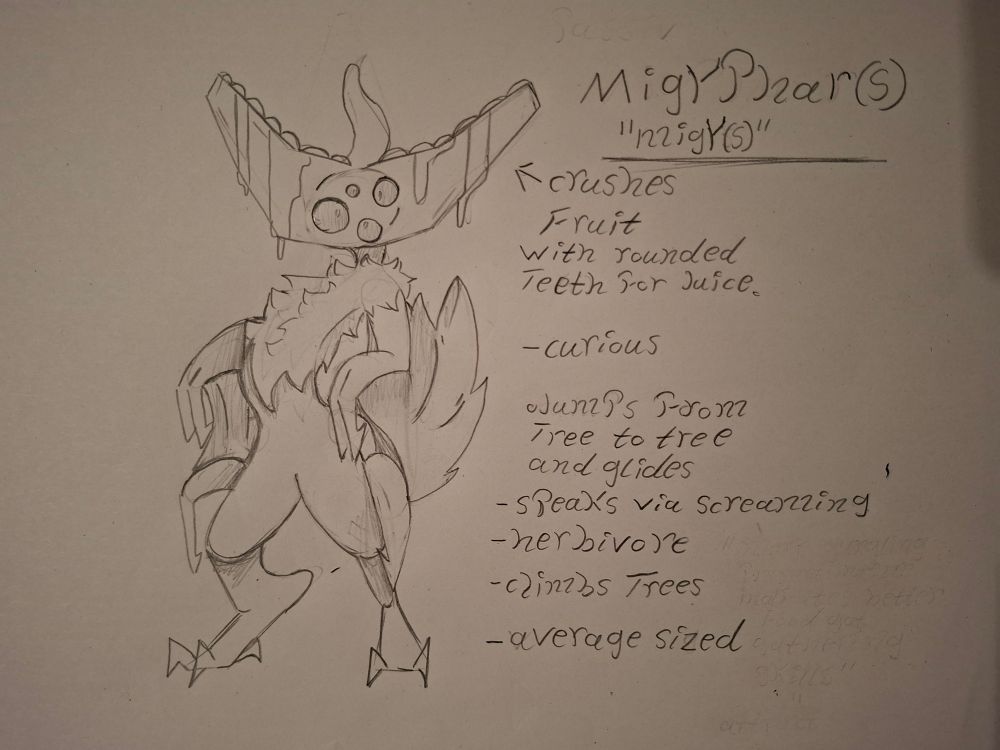 MigyPhar(s)
"migy(s)"
crushes
Fruit
with rounded
Teeth for Juice.
-curious
Jumps From
Tree to tree
and glides
-speaks via screaming
-herbivore
-climbs Trees
-average sized